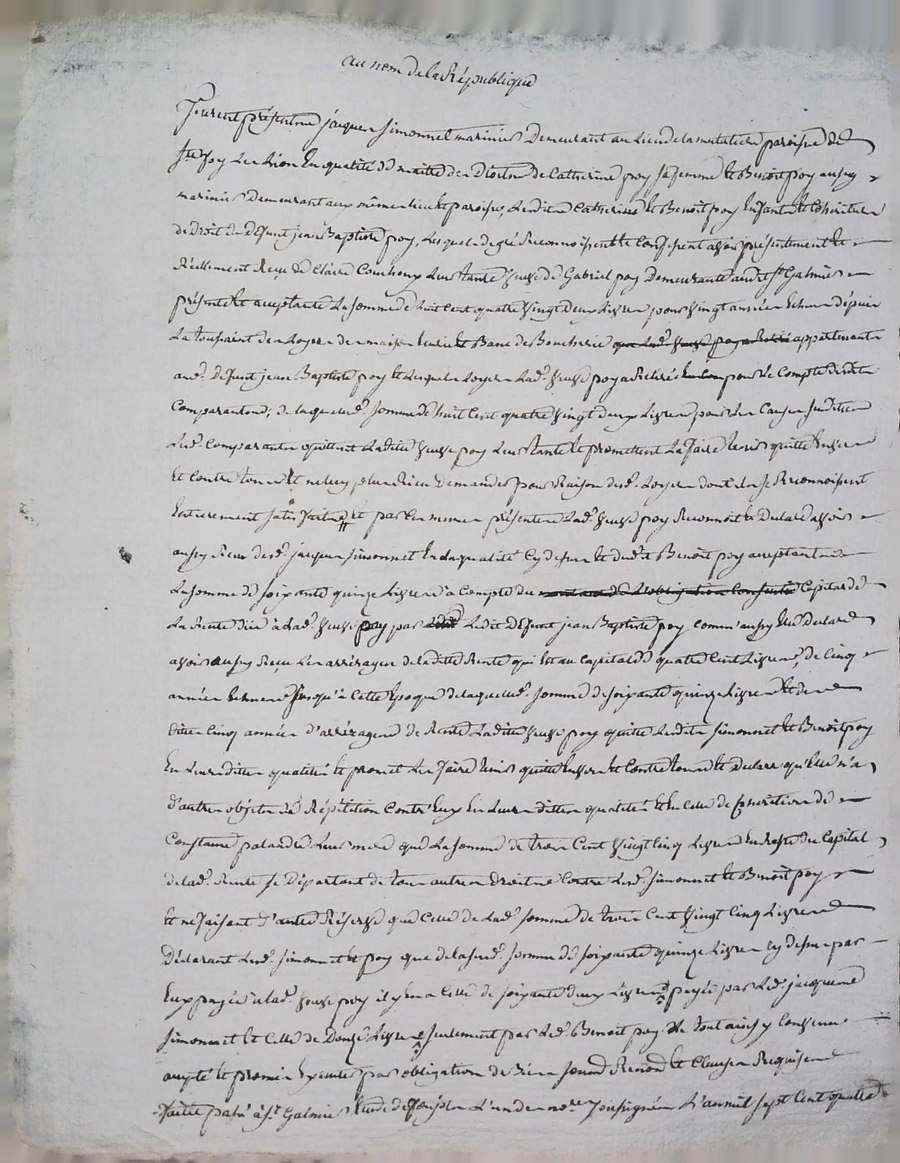 au nom de la République
Furent présents jacques simonnet marinier Demeurant au Lieu de la mulatiere paroisse de
ste foy Les Lion En qualité de maitre des Droits de Catherine poy sa femme et Benoit poy aussy
marinier Demeurant aux même lieu et paroisse, Lesdits Catherine et Benoit poy Enfants et Cohéritiers
de Droit de Défunt jean Baptiste poy, Lesquels de gré Reconnoissent et Confessent avoir présentement et
Réellement Reçu de Claire Couchoux Leur tante veuve de Gabriel poy Demeurante audit st Galmier
présente et acceptante La somme de huit Cent quatre vingt Deux Livres, pour vingt années Echues depuis
La toussaint des Loyers de maison Ecurie et Banc de Boucherie que Lad. veuve poy a Retiré appartenant
aud. Défunt jean Baptiste poy et Lesquels Loyers Lad. veuve poy a Retirés pour Le Compte desdits
Comparants; de laquelle somme de huit Cent quatre vingt deux Livres pour Les Causes susdittes
Lesd. Comparants quittent Laditte veuve poy Leur tante et promettent La faire tenir quitte Envers
Et Contre tous et ne luy plus Rien Demander pour Raison desd. Loyers dont ils se Reconnoissent
Entierement satisfaits et par Ces mêmes présentes Lad. veuve poy Reconnoit et Declare avoir
aussy Reçu desd. jacques simonnet En sa qualité Cy dessus et dudit Benoit poy acceptants
La somme de soixante quinze Livres à Compte du montant de L'obligation Consentie Capital de
La Rente düe à Lad. veuve poy par Ledit Ledit Défunt jean Baptiste poy Comm' aussy Elle Declare
avoir aussy Reçu Les arrérages de laditte Rente qui Est au Capital de quatre Cent Livres, de Cinq
années Echues jusqu'à Cette Epoque de laquelle somme de soixante quinze Livres Et des
dittes Cinq années d'arrérages de Rente Laditte veuve poy quitte Lesdits simonnet et Benoit poy
En Leurs dittes qualités et promet Les faire tenir quitte Envers et Contre tous et Declare qu'Elle n'a
d'autres objets de Répétition Contr'Eux En Leurs dittes qualités Et En Celle de Cohéritiers de
Constance palandre Leur mere que La somme de trois Cent vingt Cinq Livres En Reste du Capital
de lad. Rente se Départant de tous autres Droits Contre Lesd. simonnet et Benoit poy
Et ne faisant d'autre Réserve que Celle de Lad. somme de trois Cent vingt Cinq Livres
Déclarant Lesd. simonnet et poy que de La susd. somme de soixante quinze Livres Cy dessus par
Eux payée à lad. veuve poy il y En a Celle de soixante deux Livres payée par Led. jacques
simonnet Et Celle de Douze Livres seulement par Led. Benoit poy. Le tout ainsy Convenu
accepté et promis Executer par obligation de Biens soumis Renond et Clauses Requises
faitte passé à st. Galmier Etude de L'un des nores soussignés L'an mil sept Cent quatre